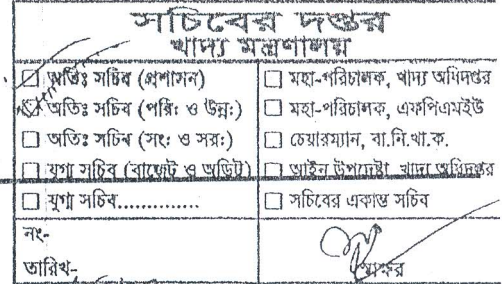 সচিবের দপ্তর
খাদ্য মন্ত্রণালয়
☐ অতিঃ সচিব (প্রশাসন)
☐ অতিঃ সচিব (পরিঃ ও উন্নঃ)
☐ অতিঃ সচিব (সং: ও সর:)
☐ যুগ্ম সচিব (বাজেট ও অডিট)
☐ যুগ্ম সচিব..............
নং-
তারিখ-
☐ মহা-পরিচালক, খাদ্য অধিদপ্তর
☐ মহা-পরিচালক, এফপিএমইউ
☐ চেয়ারম্যান, বা.নি.খা.ক.
☐ আইন উপদেষ্টা, খাদ্য অধিদপ্তর
☐ সচিবের একান্ত সচিব
স্বাক্ষর